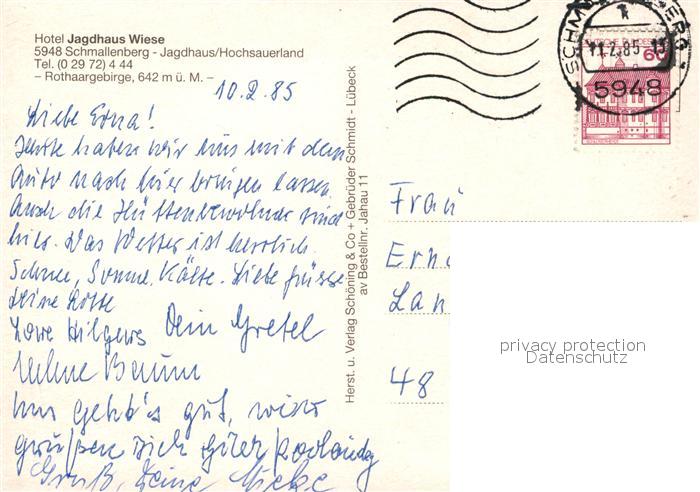 Hotel Jagdhaus Wiese
5948 Schmallenberg - Jagdhaus/Hochsauerland
Tel. (0 29 72) 4 44
– Rothaargebirge, 642 m ü. M. –
10.2.85
Liebe Erna!
Heute haben wir uns mit dem
Auto nach hier bringen lassen.
Auch die Hüttenbewohner sind
hier. Das Wetter ist herrlich.
Schnee, Sonne, Kälte. Liebe Grüsse
Deine Lotte
Hilgers Dein Gretel
Baum
Uns geht's gut, wir
grüßen Dich
Gruß, Deine
Herst. u. Verlag Schöning & Co + Gebrüder Schmidt - Lübeck
av Bestellnr. Jahau 11
11.2.85
5948
60
Frau
Erna
Lan
48
privacy protection
Datenschutz